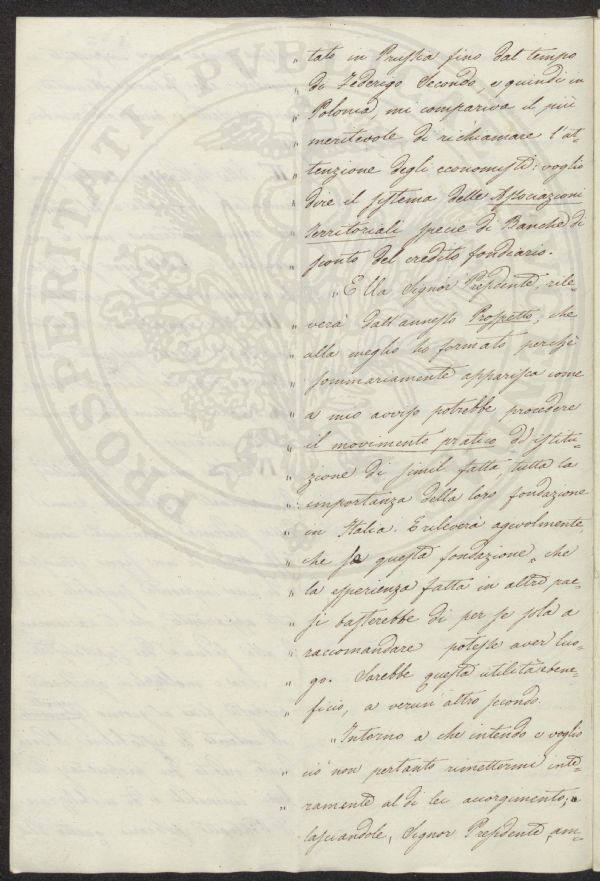 „ tato in Prussia fino dal tempo
„ di Federigo Secondo, e quindi in
„ Polonia, mi compariva il più
„ meritevole di richiamare l'at-
„ tenzione degli economisti: voglio
„ dire il sistema delle Associazioni
„ territoriali specie di Banche di
„ sconto del credito fondiario.
„ Ella Signor Presidente, rile-
„ verà dall'annesso Prospetto, che
„ alla meglio ho formato perchè
„ sommariamente apparisca come
„ a mio avviso potrebbe procedere
„ il movimento pratico d'istitu-
„ zione di simil fatta, tutta la
„ importanza della loro fondazione
„ in Italia. E rileverà agevolmente,
„ che se questa fondazione, che
„ la esperienza fatta in altri pae-
„ si basterebbe di per se sola a
„ raccomandare potesse aver luo-
„ go. Sarebbe questa utilità e bene-
„ ficio, a verun altro secondo.
„ Intorno a che intendo e voglio
„ ciò non pertanto rimettermi inte-
„ ramente al di lei accorgimento;
lasciandole, Signor Presidente, am-
PROSPERITATI PUBLICAE